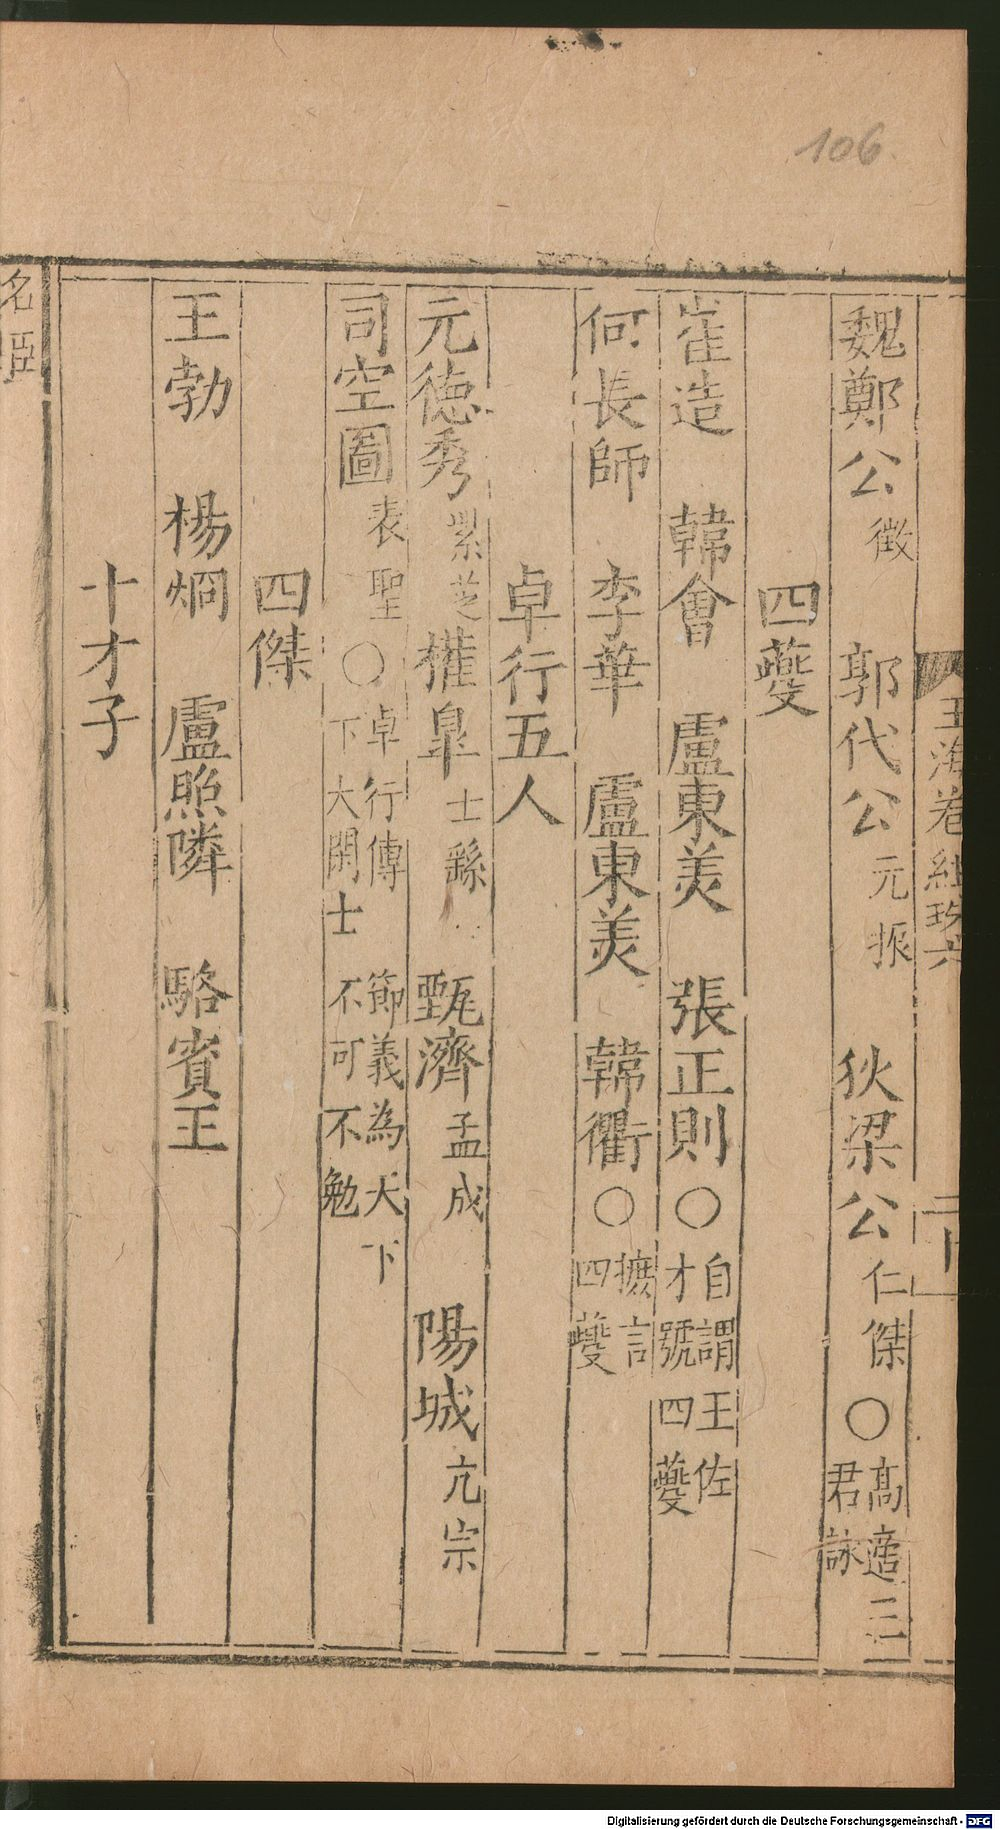 106
玉海卷 紺珠六
二十
魏鄭公徵 郭代公元振 狄梁公仁傑〇高適三君詠
四夔
崔造 韓會 盧東美 張正則〇自謂王佐才號四夔
何長師 李華 盧東美 韓衢〇摭言四夔
卓行五人
元德秀紫芝權皐士繇 甄濟孟成 陽城亢宗
司空圖表聖〇卓行傳節義為天下大閑士不可不勉
四傑
王勃 楊烱 盧照隣 駱賓王
十才子
名臣
Digitalisierung gefördert durch die Deutsche Forschungsgemeinschaft - DFG